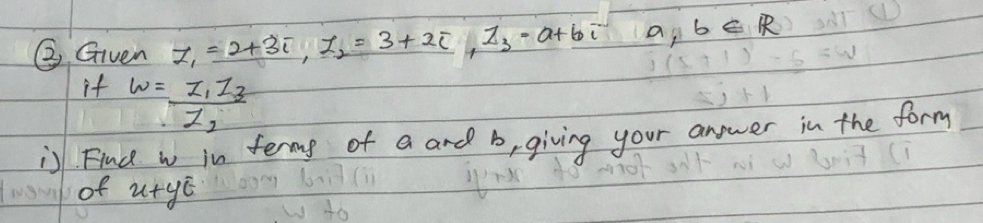 ② Given z₁ = 2+3i, z₂ = 3+2i, z₃ = a+bi a, b ∈ ℝ
if w = z₁z₃
z₂
i) Find w in terms of a and b, giving your answer in the form
of x+yi